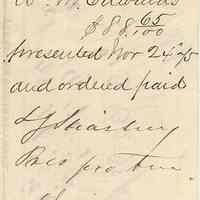 W. M. Edwards
$88.65/100
presented Nov 24
and ordered paid
Pres pro tem